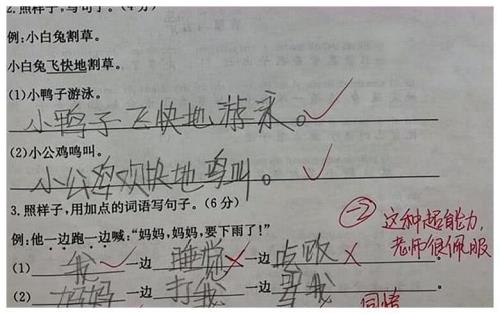 2.照样子,写句子。(4分)
例:小白兔割草。
小白兔飞快地割草。
(1)小鸭子游泳。
小鸭子飞快地游泳。
(2)小公鸡鸣叫。
小公鸡欢快地鸣叫。
3.照样子,用加点的词语写句子。(6分)
-2 这种超能力,
老师很佩服
例:他一边跑一边喊:“妈妈,妈妈,要下雨了!”
(1)我一边睡觉一边吃饭
(2)妈妈一边打我一边骂我
同情